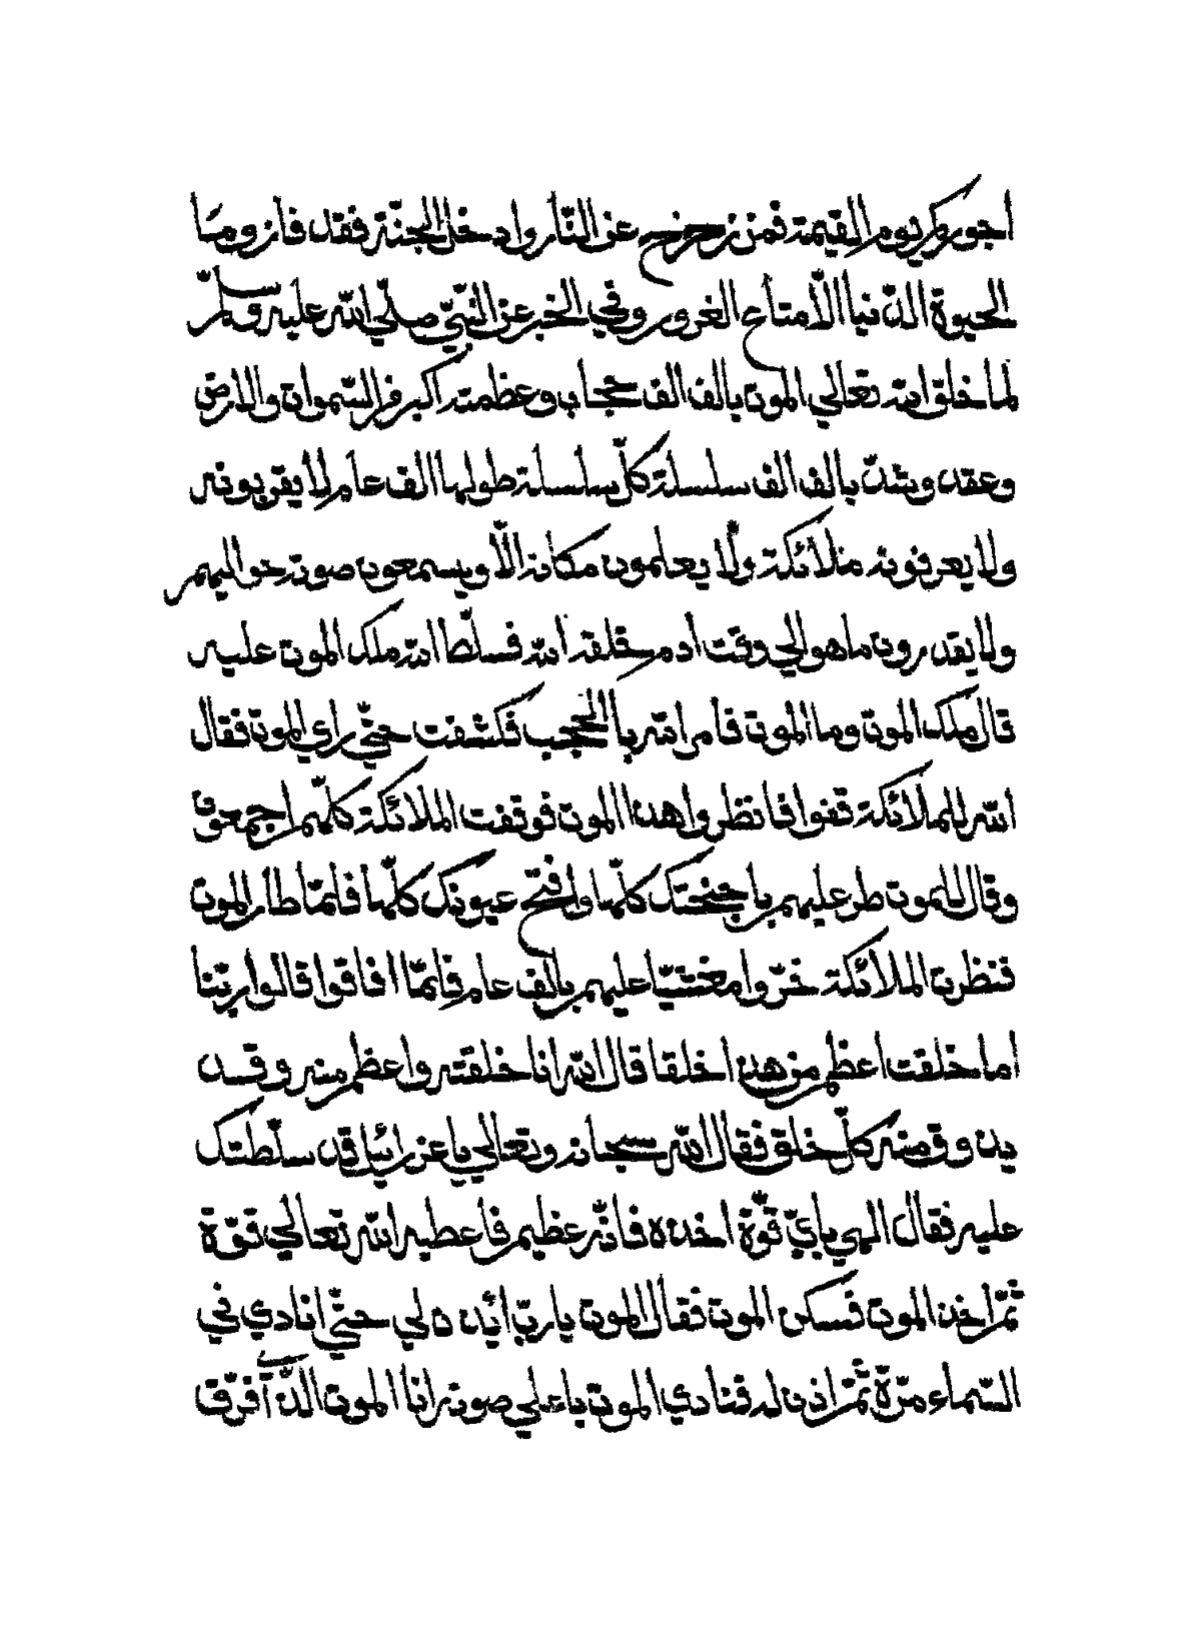 اجوركم يوم القيمة فمن زحزح عن النّار وادخل الجنّة فقد فاز وما
الحيوة الدّنيا الّا متاع الغرور وفي الخبر عن النّبيّ صلّي الله عليه وسلّم
لما خلق الله تعالي الموت بالف الف حجاب وعظمته اكبر من السّموات والارض
وعقد وشدّ بالف الف سلسلة كلّ سلسلة طولها الف عام لا يقربونه
ولا يعرفونه ملائكة ولا يعلمون مكانه الّا ويسمعون صوته حواليهم
ولا يقدرون ما هو الي وقت ادم خلقه الله فسلّط الله ملك الموت عليه
قال ملك الموت وما الموت فامر الله با الحجب فكشفت حتّي راي الموت فقال
الله للملائكة قفوا فانظروا هذا الموت فوقفت الملائكة كلّهم اجمعون
وقال للموت طر عليهم باجنحتك كلّها وافتح عيونك كلّها فلمّا طار الموت
فنظرت الملائكة خرّوا مغشيّا عليهم بالف عام فلمّا افاقوا قالوا ربّنا
اما خلقت اعظم من هذا خلقا قال الله انا خلقته واعظم منه وقد
يذوق منه كلّ خلق فقال الله سبحانه وتعالي يا عزرائيل قد سلّطتك
عليه فقال الهي بايّ قوّة اخذه فانّه عظيم فاعطيه الله تعالي قوّة
ثمّ اخذ الموت فسكن الموت فقال الموت يا ربّ ائذن لي حتّي انادي في
السّماء مرّة ثمّ اذن له فنادي الموت باعلي صوته انا الموت الّذي افرّق